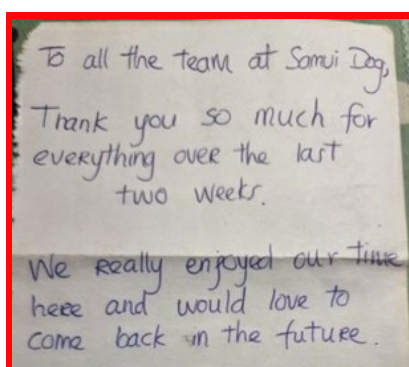 To all the team at Samui Dog,
Thank you so much for
everything over the last
two weeks.
We really enjoyed our time
here and would love to
come back in the future.